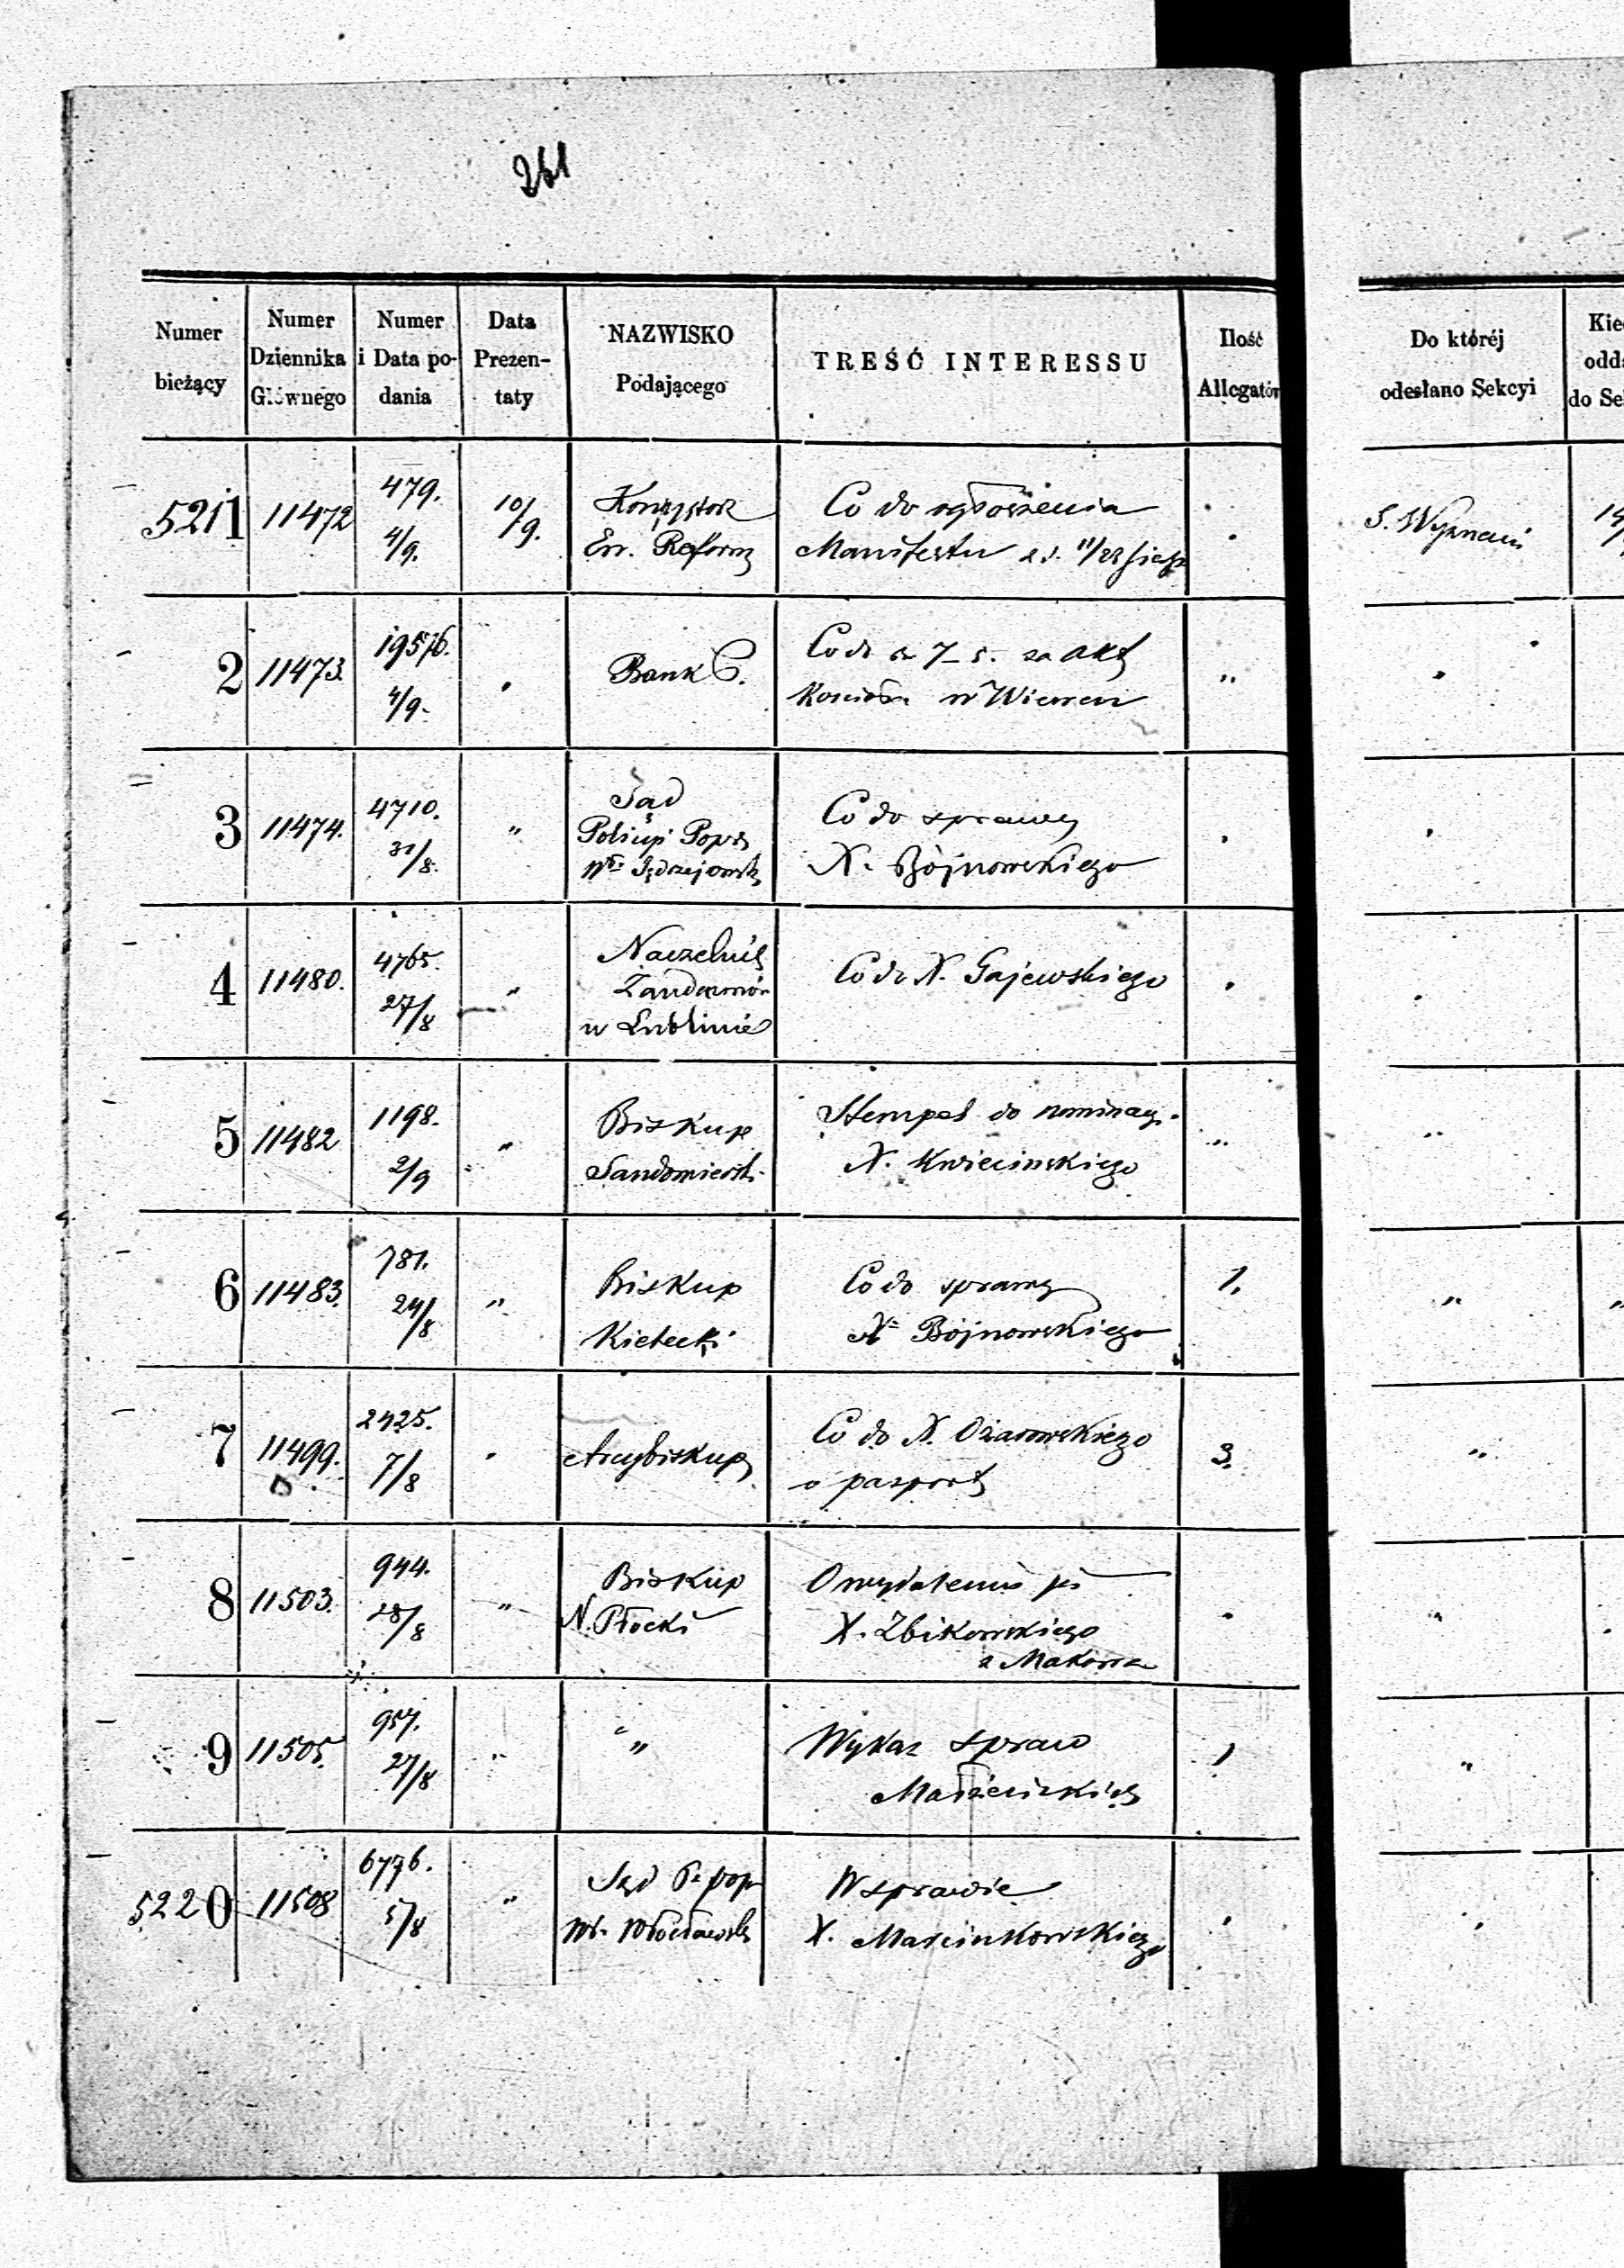 261
Numer bieżący | Numer Dziennika Głównego | Numer i Data podania | Data Prezentaty | NAZWISKO Podającego | TREŚĆ INTERESSU | Ilość Allegatów | Do któréj odesłano Sekcyi
5211 | 11472 | 479. 4/9. | 10/9. | Konsystorz Ew. Reform | Co do ogłoszenia Manifestu | . | S. Wyznań
2 | 11473. | 19576. 4/9. | " | Bank P. | Co do 7 za akt w | " | "
3 | 11474. | 4710. 31/8. | " | Sąd Policyi Popr | Co do sprawy X. Bójnowskiego | . | "
4 | 11480. | 4765. 27/8 | " | Naczelnik Żandarmów w Lublinie | Co do X. Gajewskiego | . | "
5 | 11482 | 1198. 2/9 | " | Biskup Sandomiersk. | Stempel do nominacy. X. Kwiecinskiego | " | "
6 | 11483. | 781. 24/8 | " | Biskup Kielecki | Co do sprawy Xa Bojnowskiego | 1. | "
7 | 11499. | 2425. 7/8 | " | Arcybiskup | Co do X. Ożarowskiego o pasport | 3. | "
8 | 11503. | 944. 28/8 | " | Biskup N. Płocki | X. Zbikowskiego z Makowa | . | "
9 | 11505. | 957. 27/8 | " | " | Wykaz spraw Małżeńskich | 1 | "
5220 | 11508 | 6776. 5/8 | " | Sąd P. pop | W sprawie X. Marcinkowskiego | . | "